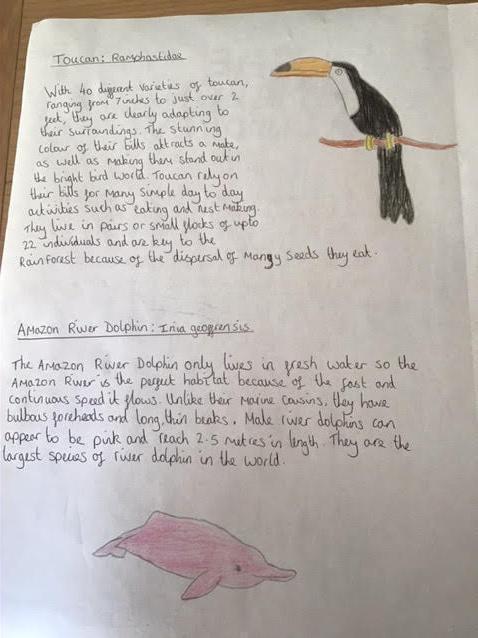 Toucan: Ramphastidae
With 40 different varieties of toucan,
ranging from 7inches to just over 2
feet, they are clearly adapting to
their surroundings. The stunning
colour of their bills attracts a mate,
as well as making them stand out in
the bright bird world. Toucan rely on
their bills for many simple day to day
activities such as eating and nest making.
They live in pairs or small flocks of upto
22 individuals and are key to the
Rainforest because of the dispersal of many seeds they eat.
Amazon River Dolphin: Inia geoffrensis
The Amazon River Dolphin only lives in fresh water so the
Amazon River is the perfect habitat because of the fast and
continuous speed it flows. Unlike their marine cousins, they have
bulbous foreheads and long, thin beaks. Male river dolphins can
appear to be pink and reach 2.5 metres in length. They are the
largest species of river dolphin in the world.